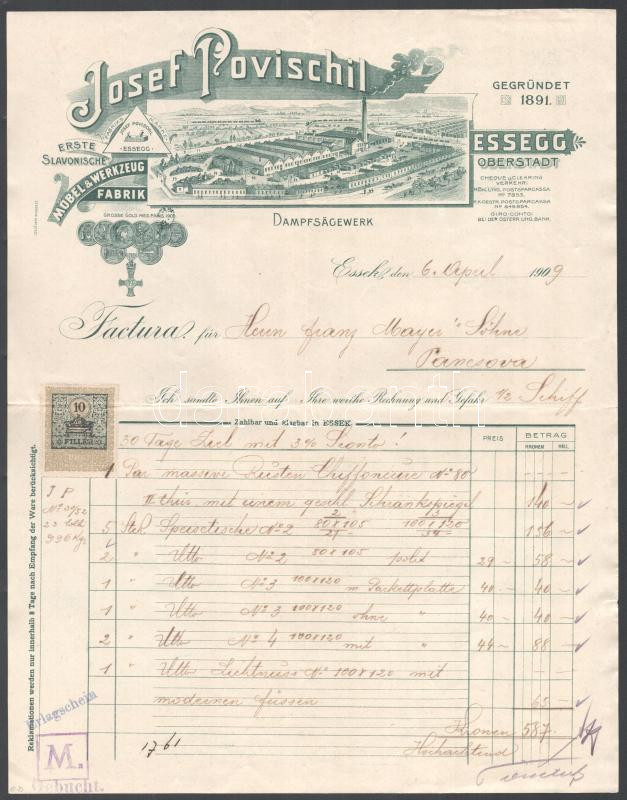 Josef Povischil
GEGRÜNDET
1891.
FABRIKS MARKE
JOSEF POVISCHIL
ESSEGG
ERSTE
SLAVONISCHE
MÖBEL & WERKZEUG
FABRIK
ESSEGG
OBERSTADT
CHEQUE u. CLEARING
VERKEHR:
KÖN. UNG. POSTSPARCASSA
Nº 7853.
K.K. OESTR. POSTSPARCASSA
Nº 849.854.
GIRO-CONTO:
BEI DER ÖSTERR. UNG. BANK.
GROSSE GOLD. MED. PARIS 1905
DAMPFSÄGEWERK
Essek, den 6. April 1909
Factura. für Herrn Franz Mayer's Söhne
Pancsova
Ich sandte Ihnen auf Ihre werthe Rechnung und Gefahr 1/2 Schiff
Zahlbar und klagbar in ESSEK.
darabanth.com
10
FILLÉR
PREIS
BETRAG
KRONEN
HELL.
30 Tage Ziel mit 3% Sconto!
1 Par massive Rüsten Chiffoniere Nº 80
II thür. mit einem geschl. Schrankspiegel 140 –
5 Stck Speisetische Nº 2 80 x 105 100 x 120 156 –
2 " Dtto Nº 2 80 x 105 polit 29 – 58 –
1 " Dtto Nº 3 100 x 120 m Parkettplatte 40 – 40 –
1 " Dtto Nº 3 100 x 120 ohne " 40 – 40 –
2 " Dtto Nº 4 100 x 120 mit " 44 – 88 –
1 " Dtto Nº 100 x 120 mit
modernen füssen 65 –
Kronen 587.–
Hochachtend
1761
J P
990 Kg
Reklamationen werden nur innerhalb 8 Tage nach Empfang der Ware berücksichtigt.
Erlagschein
M.
Gebucht.